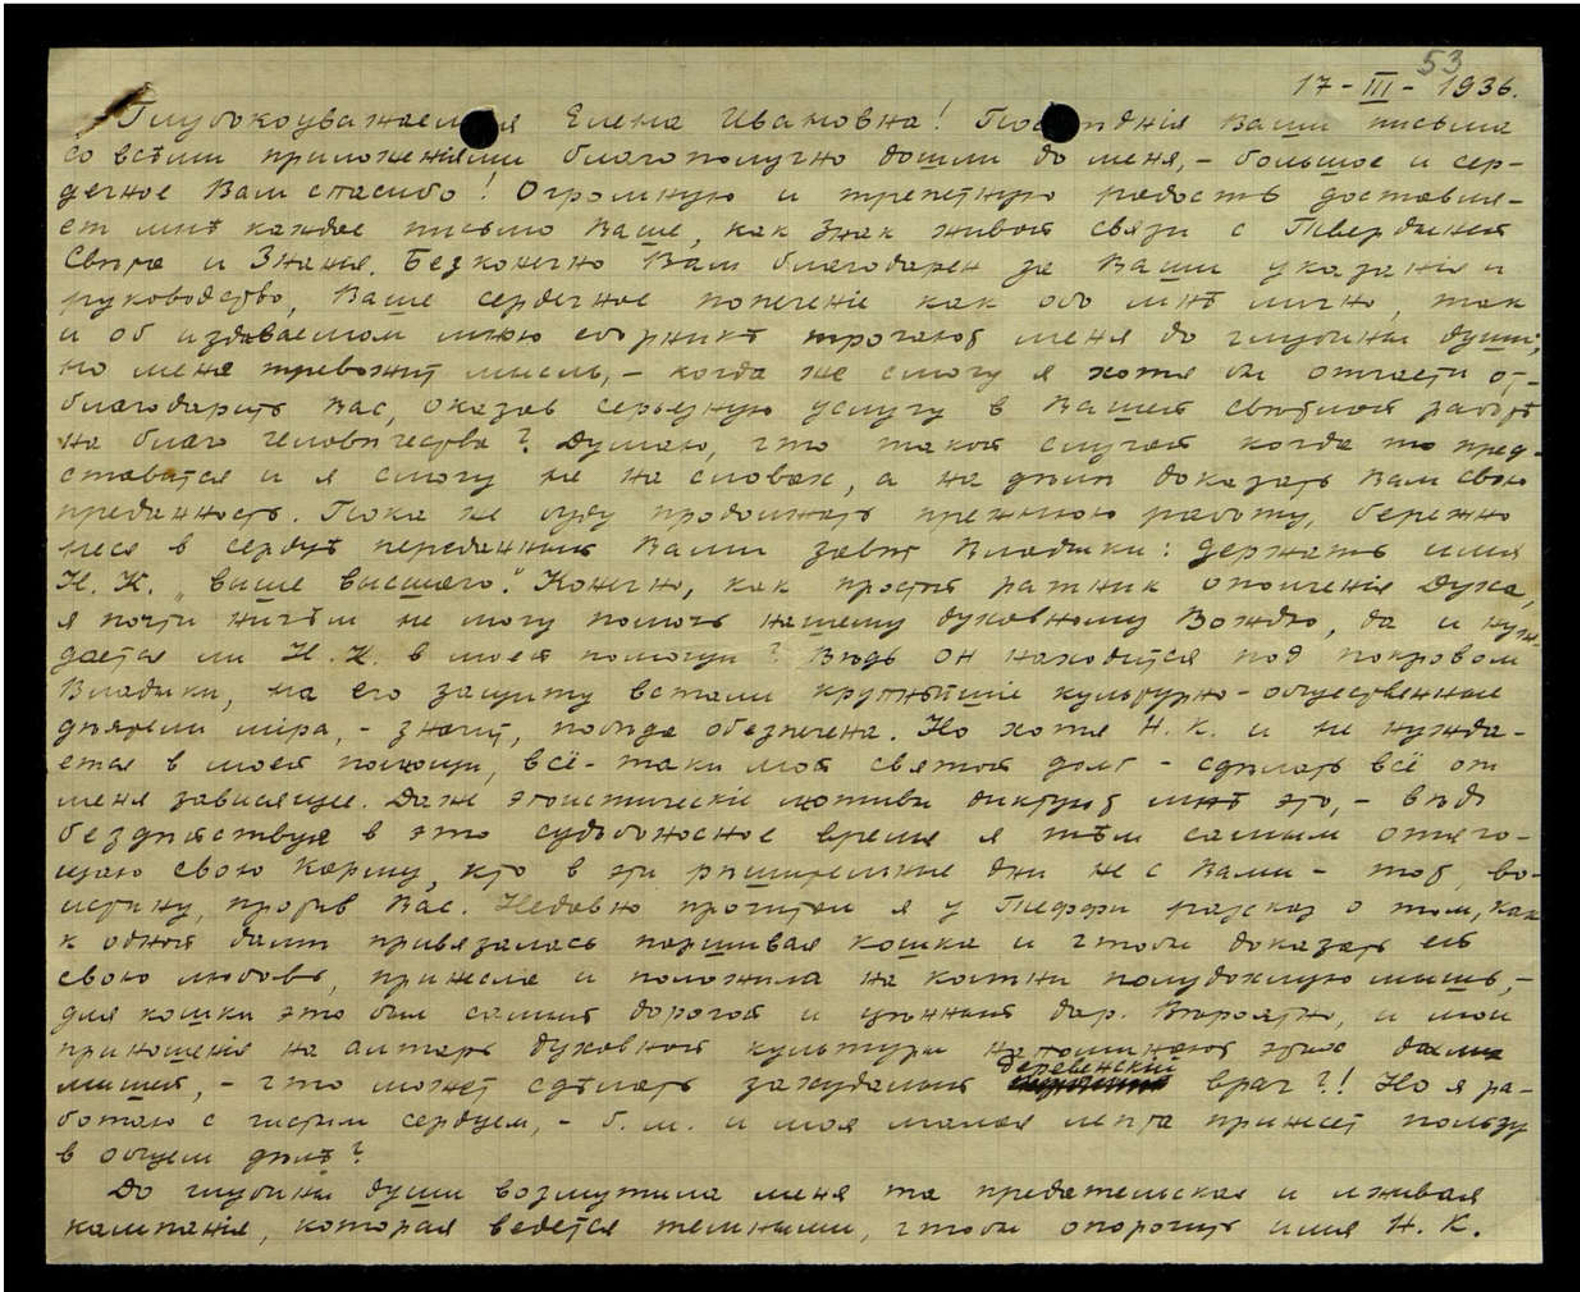 53
17-III-1936.
Глубокоуважаемая Елена Ивановна! Последнія Ваши письма
со всѣми приложеніями благополучно дошли до меня, - большое и сер-
дечное Вам спасибо! Огромную и трепетную радость доставля-
ет мнѣ каждое письмо Ваше, как знак живой связи с Твердыней
Свѣта и Знанія. Безконечно Вам благодарен за Ваши указанія и
руководство, Ваше сердечное попеченіе как обо мнѣ лично, так
и об издаваемом мною сборникѣ трогают меня до глубины души;
но меня тревожит мысль, - когда же смогу я хотя бы отчасти от-
благодарить Вас, оказав серьезную услугу в Вашей свѣтлой работѣ
на благо человѣчества? Думаю, что такой случай когда то пред-
ставится и я смогу не на словах, а на дѣлѣ доказать Вам свою
преданность. Пока же буду продолжать прежнюю работу, бережно
неся в сердцѣ переданный Вами завѣт Владыки: держать имя
Н. К. „выше высшаго". Конечно, как простой ратник ополченія Духа,
я почти ничѣм не могу помочь нашему духовному Вождю, да и нуж-
дается ли Н. К. в моей помощи? Вѣдь он находится под покровом
Владыки, на его защиту встали крупнѣйшіе культурно-общественные
дѣятели міра, - значит, побѣда обезпечена. Но хотя Н. К. и не нужда-
ется в моей помощи, всё-таки мой святой долг - сдѣлать всё от
меня зависящее. Даже эгоистическіе мотивы диктуют мнѣ это, - вѣдь
бездѣйствуя в это судьбоносное время я тѣм самым отяго-
щаю свою карму, кто в эти рѣшительные дни не с Вами - тот, во-
истину, против Вас. Недавно прочитал я у Тэффи разсказ о том, как
к одной дамѣ привязалась паршивая кошка и чтобы доказать ей
свою любовь, принесла и положила на колѣни полудохлую мышь, -
для кошки это был самый дорогой и цѣнный дар. Вѣроятно, и мои
приношенія на алтарь духовной культуры напоминают этих дохлых
мышей, - что может сдѣлать захудалый деревенскій врач?! Но я ра-
ботаю с чистым сердцем, - б. м. и моя малая лепта принесет пользу
в общем дѣлѣ?
До глубины души возмутила меня та предательская и лживая
кампанія, которая ведется темными, чтобы опорочить имя Н. К.